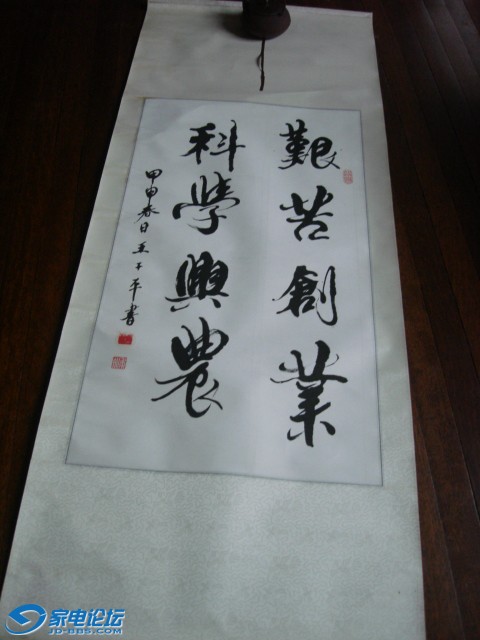 艱苦創業
科學興農
甲申春日王子平書
家电论坛
JD-BBS.COM